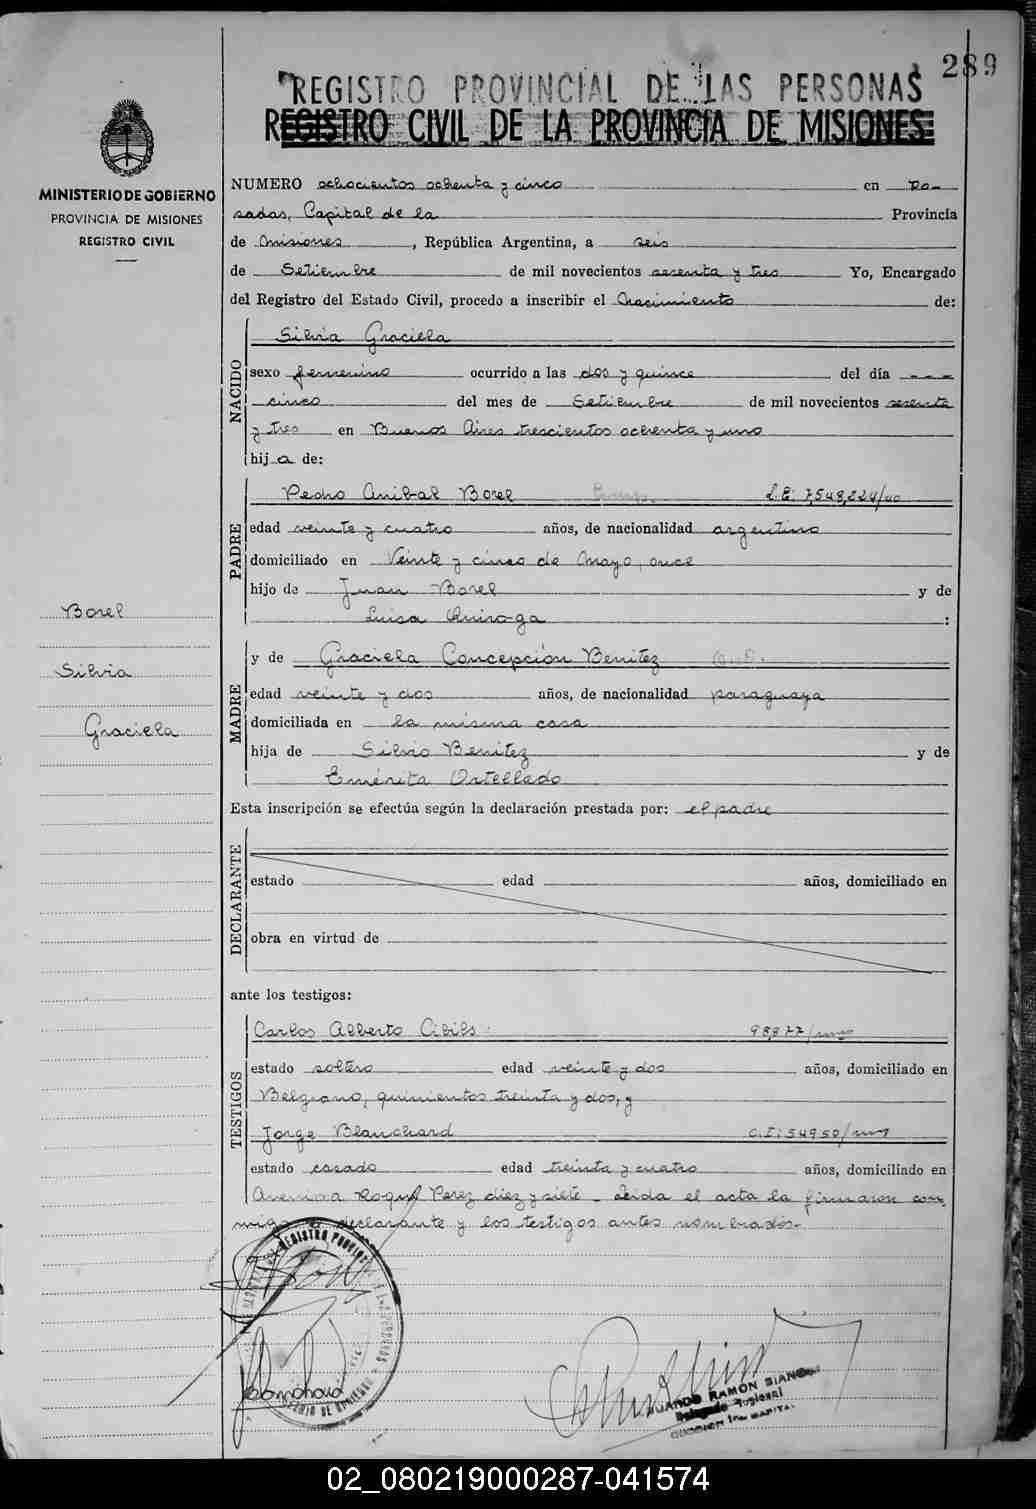 289
REGISTRO PROVINCIAL DE LAS PERSONAS
REGISTRO CIVIL DE LA PROVINCIA DE MISIONES
MINISTERIO DE GOBIERNO
PROVINCIA DE MISIONES
REGISTRO CIVIL
NUMERO ochocientos ochenta y cinco en Po-
sadas, Capital de la Provincia
de Misiones, República Argentina, a seis
de Setiembre de mil novecientos sesenta y tres Yo, Encargado
del Registro del Estado Civil, procedo a inscribir el Nacimiento de:
NACIDO
Silvia Graciela
sexo femenino ocurrido a las dos y quince del día ---
cinco del mes de Setiembre de mil novecientos sesenta
y tres en Buenos Aires trescientos ochenta y uno
hija de:
PADRE
Pedro Anibal Borel L.E: 7,548,224/
edad veinte y cuatro años, de nacionalidad argentino
domiciliado en Veinte y cinco de Mayo, once
hijo de Juan Borel y de
Luisa Quiroga :
Borel
Silvia
Graciela
MADRE
y de Graciela Concepción Benitez
edad veinte y dos años, de nacionalidad paraguaya
domiciliada en la misma casa
hija de Silvio Benitez y de
Emérita Ortellado
Esta inscripción se efectúa según la declaración prestada por: el padre
DECLARANTE
estado edad años, domiciliado en
obra en virtud de
ante los testigos:
TESTIGOS
Carlos Alberto Cibils 98,877/
estado soltero edad veinte y dos años, domiciliado en
Belgrano, quinientos treinta y dos, y
Jorge Blanchard C.I: 54950/
estado casado edad treinta y cuatro años, domiciliado en
Avenida Roque Perez diez y siete - Leida el acta la firmaron con-
migo el declarante y los testigos antes nombrados.-
REGISTRO PROVINCIAL DE LAS PERSONAS
Blanchard
RAMON
Delegado Regional
CAPITAL
02_080219000287-041574